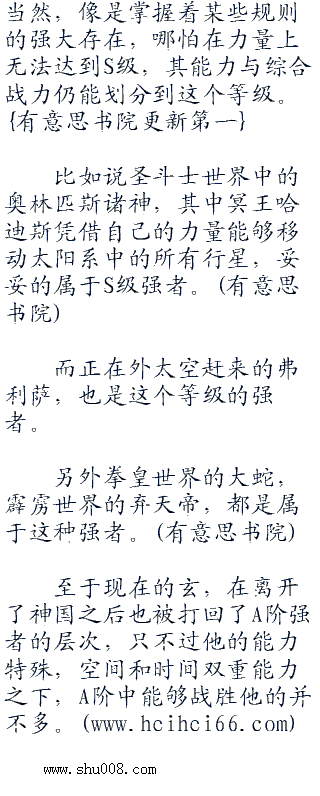 当然，像是掌握着某些规则
的强大存在，哪怕在力量上
无法达到S级，其能力与综合
战力仍能划分到这个等级。
{有意思书院更新第一}
比如说圣斗士世界中的
奥林匹斯诸神，其中冥王哈
迪斯凭借自己的力量能够移
动太阳系中的所有行星，妥
妥的属于S级强者。(有意思
书院)
而正在外太空赶来的弗
利萨，也是这个等级的强
者。
另外拳皇世界的大蛇，
霹雳世界的弃天帝，都是属
于这种强者。(有意思书院)
至于现在的玄，在离开
了神国之后也被打回了A阶强
者的层次，只不过他的能力
特殊，空间和时间双重能力
之下，A阶中能够战胜他的并
不多。(www.hcihci66.com)
www.shu008.com